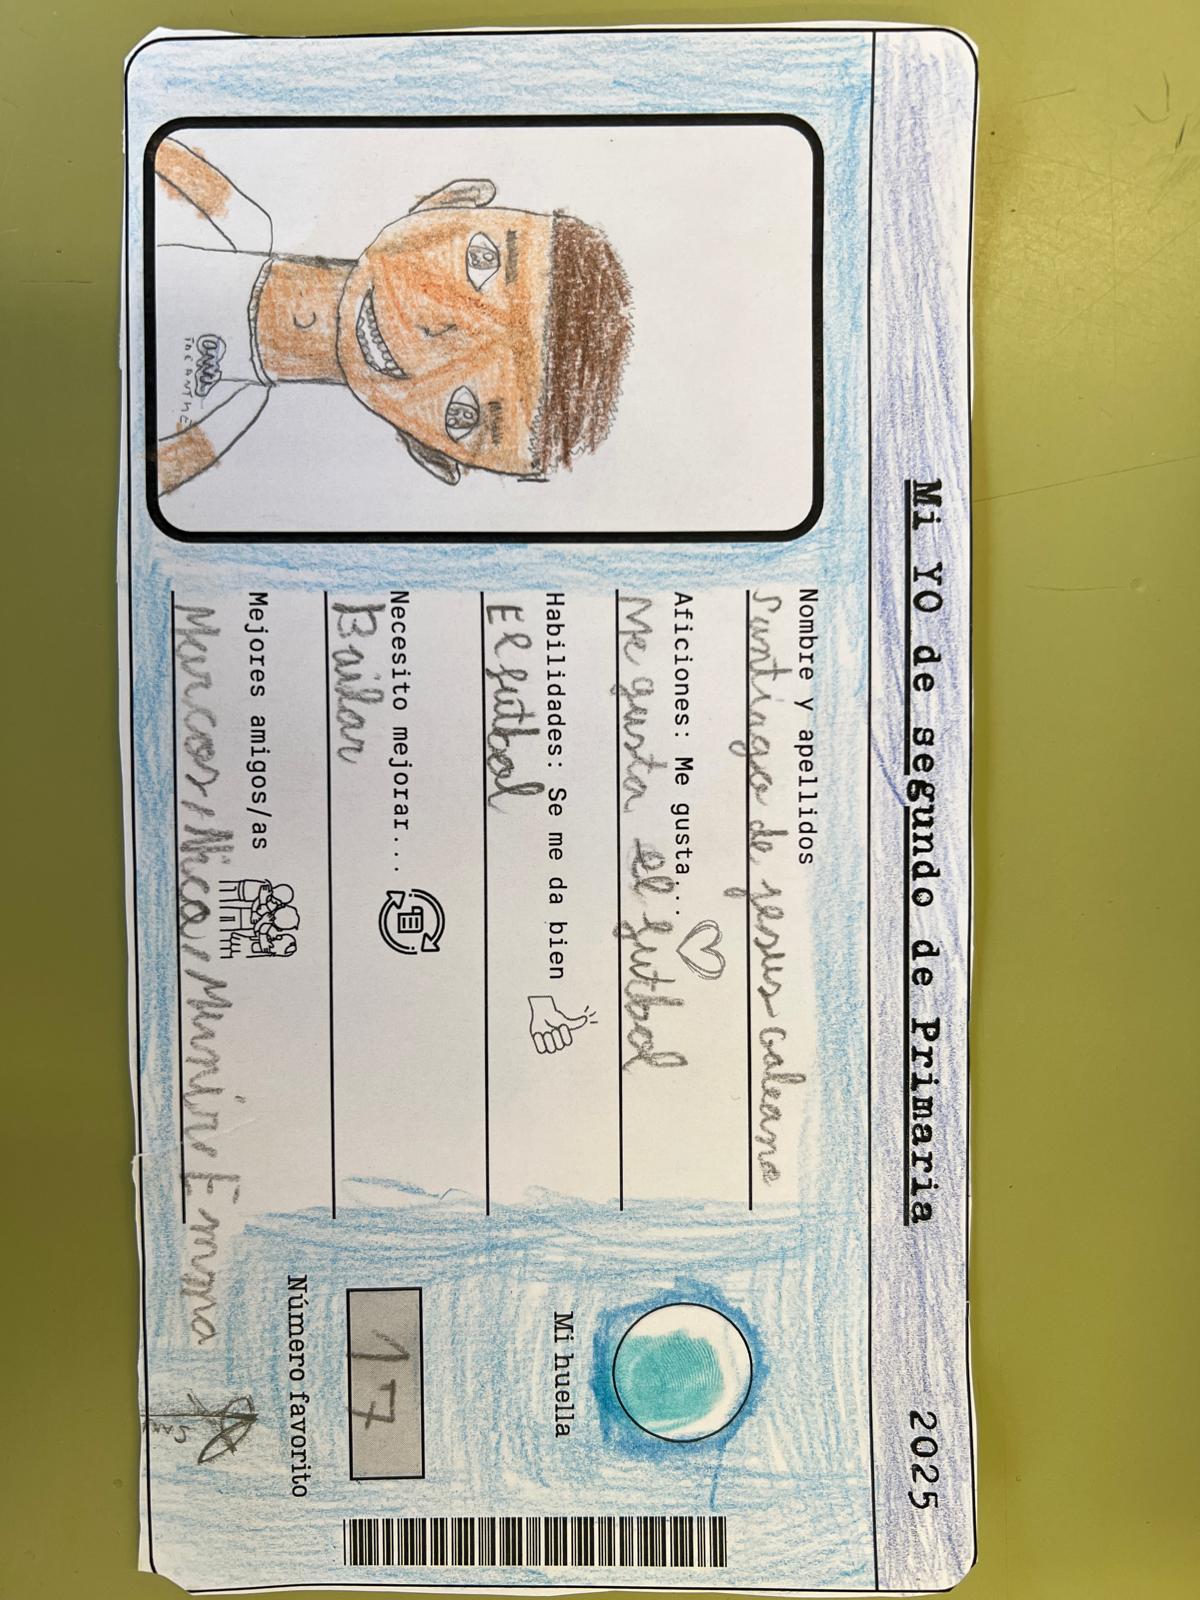 Mi YO de segundo de Primaria
2025
Nombre y apellidos
Santiago de jesus Galeano
Aficiones: Me gusta...
Me gusta el futbol
Habilidades: Se me da bien
El futbol
Necesito mejorar...
Bailar
Mejores amigos/as
Marcos, Nico, Munir, Emma
Mi huella
17
Número favorito